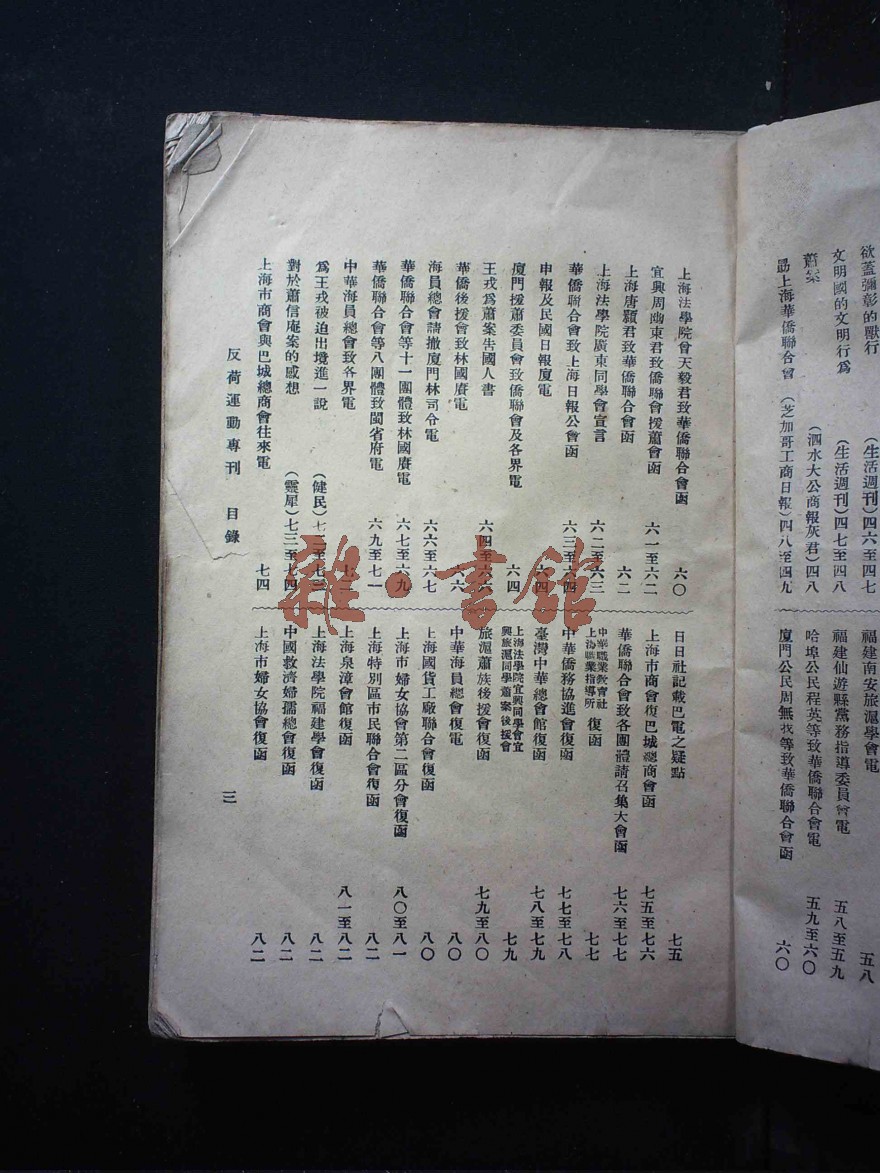 欲蓋彌彰的獸行 (生活週刊)四六至四七
文明國的文明行為 (生活週刊)四七至四八
蕭案 (泗水大公商報灰君)四八
勗上海華僑聯合會 (芝加哥工商日報)四八至四九
福建南安旅滬學會電 五八
福建仙遊縣黨務指導委員會電 五八至五九
哈埠公民程英等致華僑聯合會電 五九至六〇
廈門公民周無我等致華僑聯合會函 六〇
上海法學院曾天毅君致華僑聯合會函 六〇
宜興周衂東君致僑聯會援蕭會函 六一至六二
上海唐顥君致華僑聯合會函 六二
上海法學院廣東同學會宣言 六二至六三
華僑聯合會致上海日報公會函 六三至六四
申報及民國日報廈電 六四
廈門援蕭委員會致僑聯會及各界電 六四
王戎為蕭案告國人書 六四至六六
華僑後援會致林國賡電 六六
海員總會請撤廈門林司令電 六六至六七
華僑聯合會等十一團體致林國賡電 六七至六九
華僑聯合會等八團體致閩省府電 六九至七一
中華海員總會致各界電
為王戎被迫出境進一說 (健民)
對於蕭信庵案的感想 (靈犀)七三至七四
上海市商會與巴城總商會往來電 七四
日日社記載巴電之疑點 七五
上海市商會復巴城總商會函 七五至七六
華僑聯合會致各團體請召集大會函 七六至七七
中華職業教育社
上海職業指導所 復函 七七
中華僑務協進會復函 七七至七八
臺灣中華總會館復函 七八至七九
上海法學院宜興同學會宜
興旅滬同學蕭案後援會 七九
旅滬蕭族後援會復函 七九至八〇
中華海員總會復電 八〇
上海國貨工廠聯合會復函 八〇
上海市婦女協會第二區分會復函 八〇至八一
上海特別區市民聯合會復函 八二
上海泉漳會館復函 八一至八二
上海法學院福建學會復函 八二
中國救濟婦孺總會復函 八二
上海市婦女協會復函 八二
反荷運動專刊 目錄 三
雜·書館